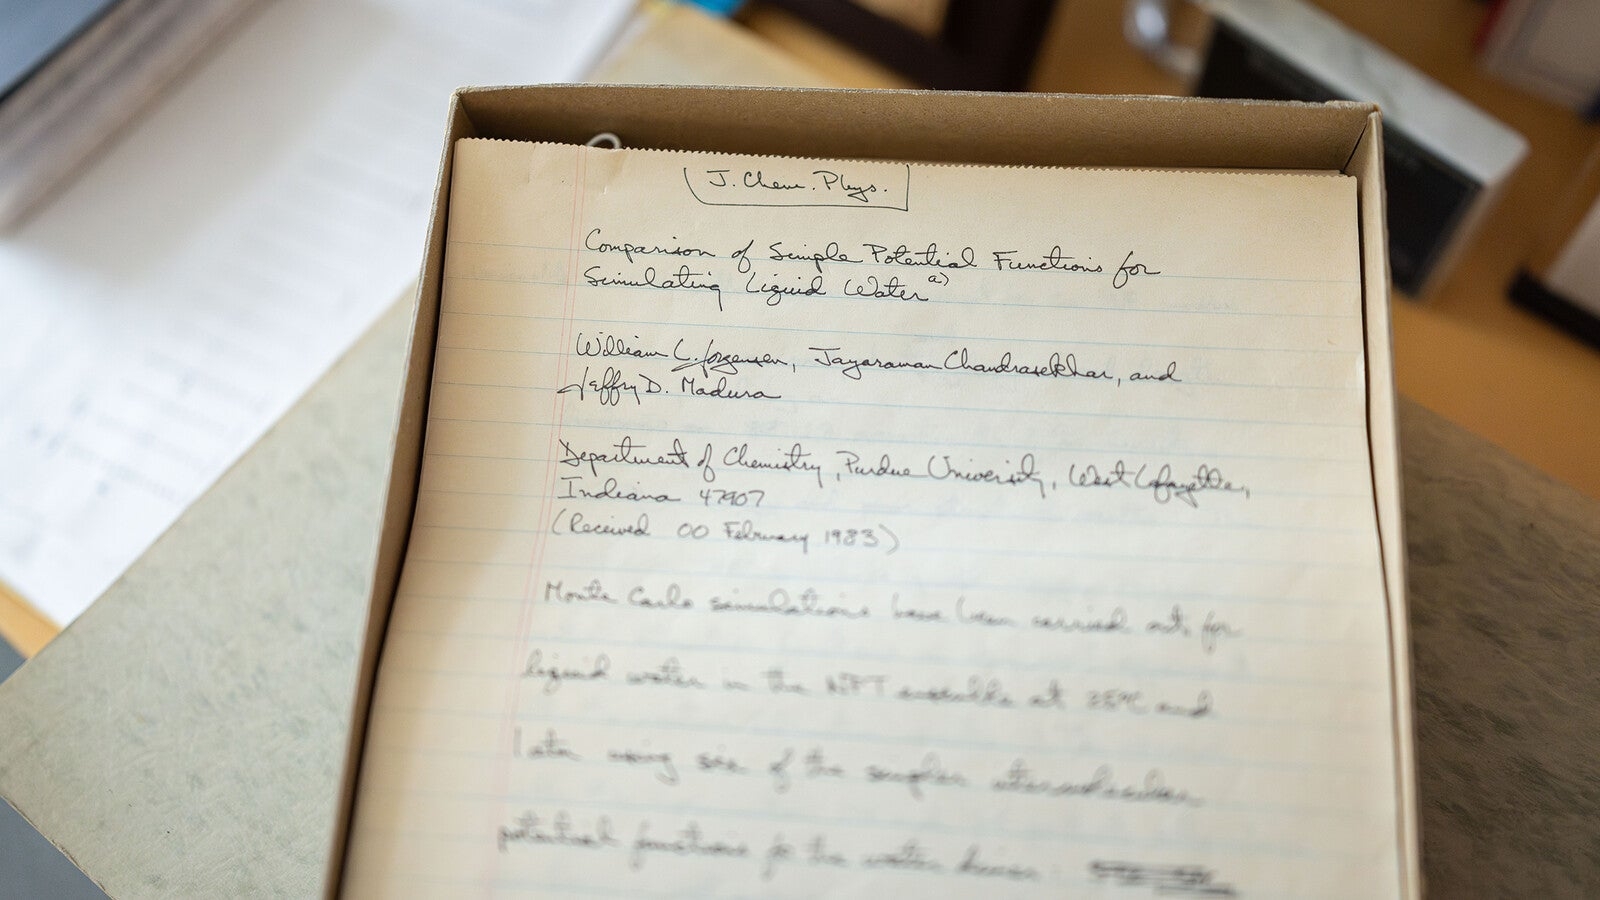 J. Chem. Phys.
Comparison of Simple Potential Functions for
Simulating Liquid Water a)
William L. Jorgensen, Jayaraman Chandrasekhar, and
Jeffry D. Madura
Department of Chemistry, Purdue University, West Lafayette,
Indiana 47907
(Received 00 February 1983)
Monte Carlo simulations have been carried out for
liquid water in the NPT ensemble at 25°C and
1 atm using six of the simpler intermolecular
potential functions for the water dimer.